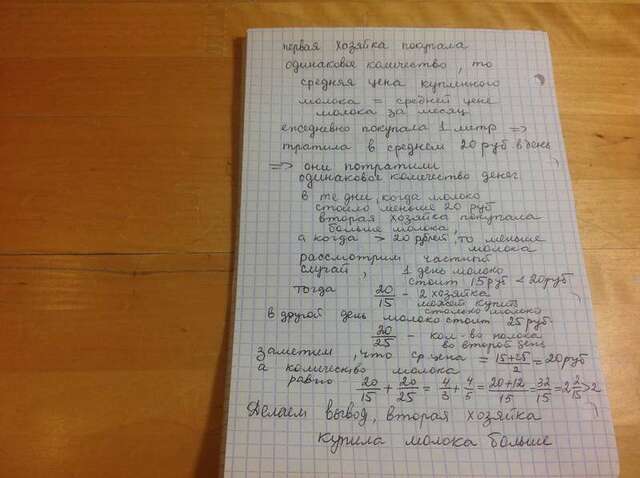 первая хозяйка покупала
одинаковое количество, то
средняя цена купленного
молока = средней цене
молока за месяц
ежедневно покупала 1 литр =>
тратила в среднем 20 руб в день
=> они потратили
одинаковое количество денег
в те дни, когда молоко
стоило меньше 20 руб
вторая хозяйка покупала
больше молока,
а когда > 20 рублей, то меньше
молока
рассмотрим частный
случай, 1 день молоко
стоит 15 руб < 20 руб
тогда 20/15 - 2 хозяйка
может купить
столько молока
в другой день молоко стоит 25 руб.
20/25 - кол-во молока
во второй день
заметим, что ср цена = (15+25)/2 = 20 руб
а количество молока
равно 20/15 + 20/25 = 4/3 + 4/5 = (20+12)/15 = 32/15 = 2 2/15 > 2
Делаем вывод, вторая хозяйка
купила молока больше